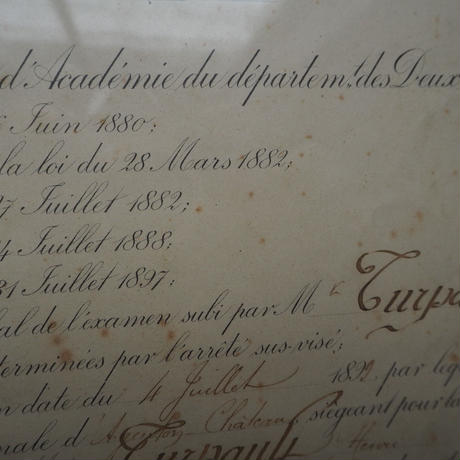 d'Académie du départem.t des Deux
Juin 1880;
la loi du 28 Mars 1882;
27 Juillet 1882;
4 Juillet 1888;
31 Juillet 1897;
al de l'examen subi par Mr Turpa
terminées par l'arrêté sus-visé;
n date du 4 Juillet 189 par leq
nale d'Argenton-Château siégeant pour la
Turpault Henri